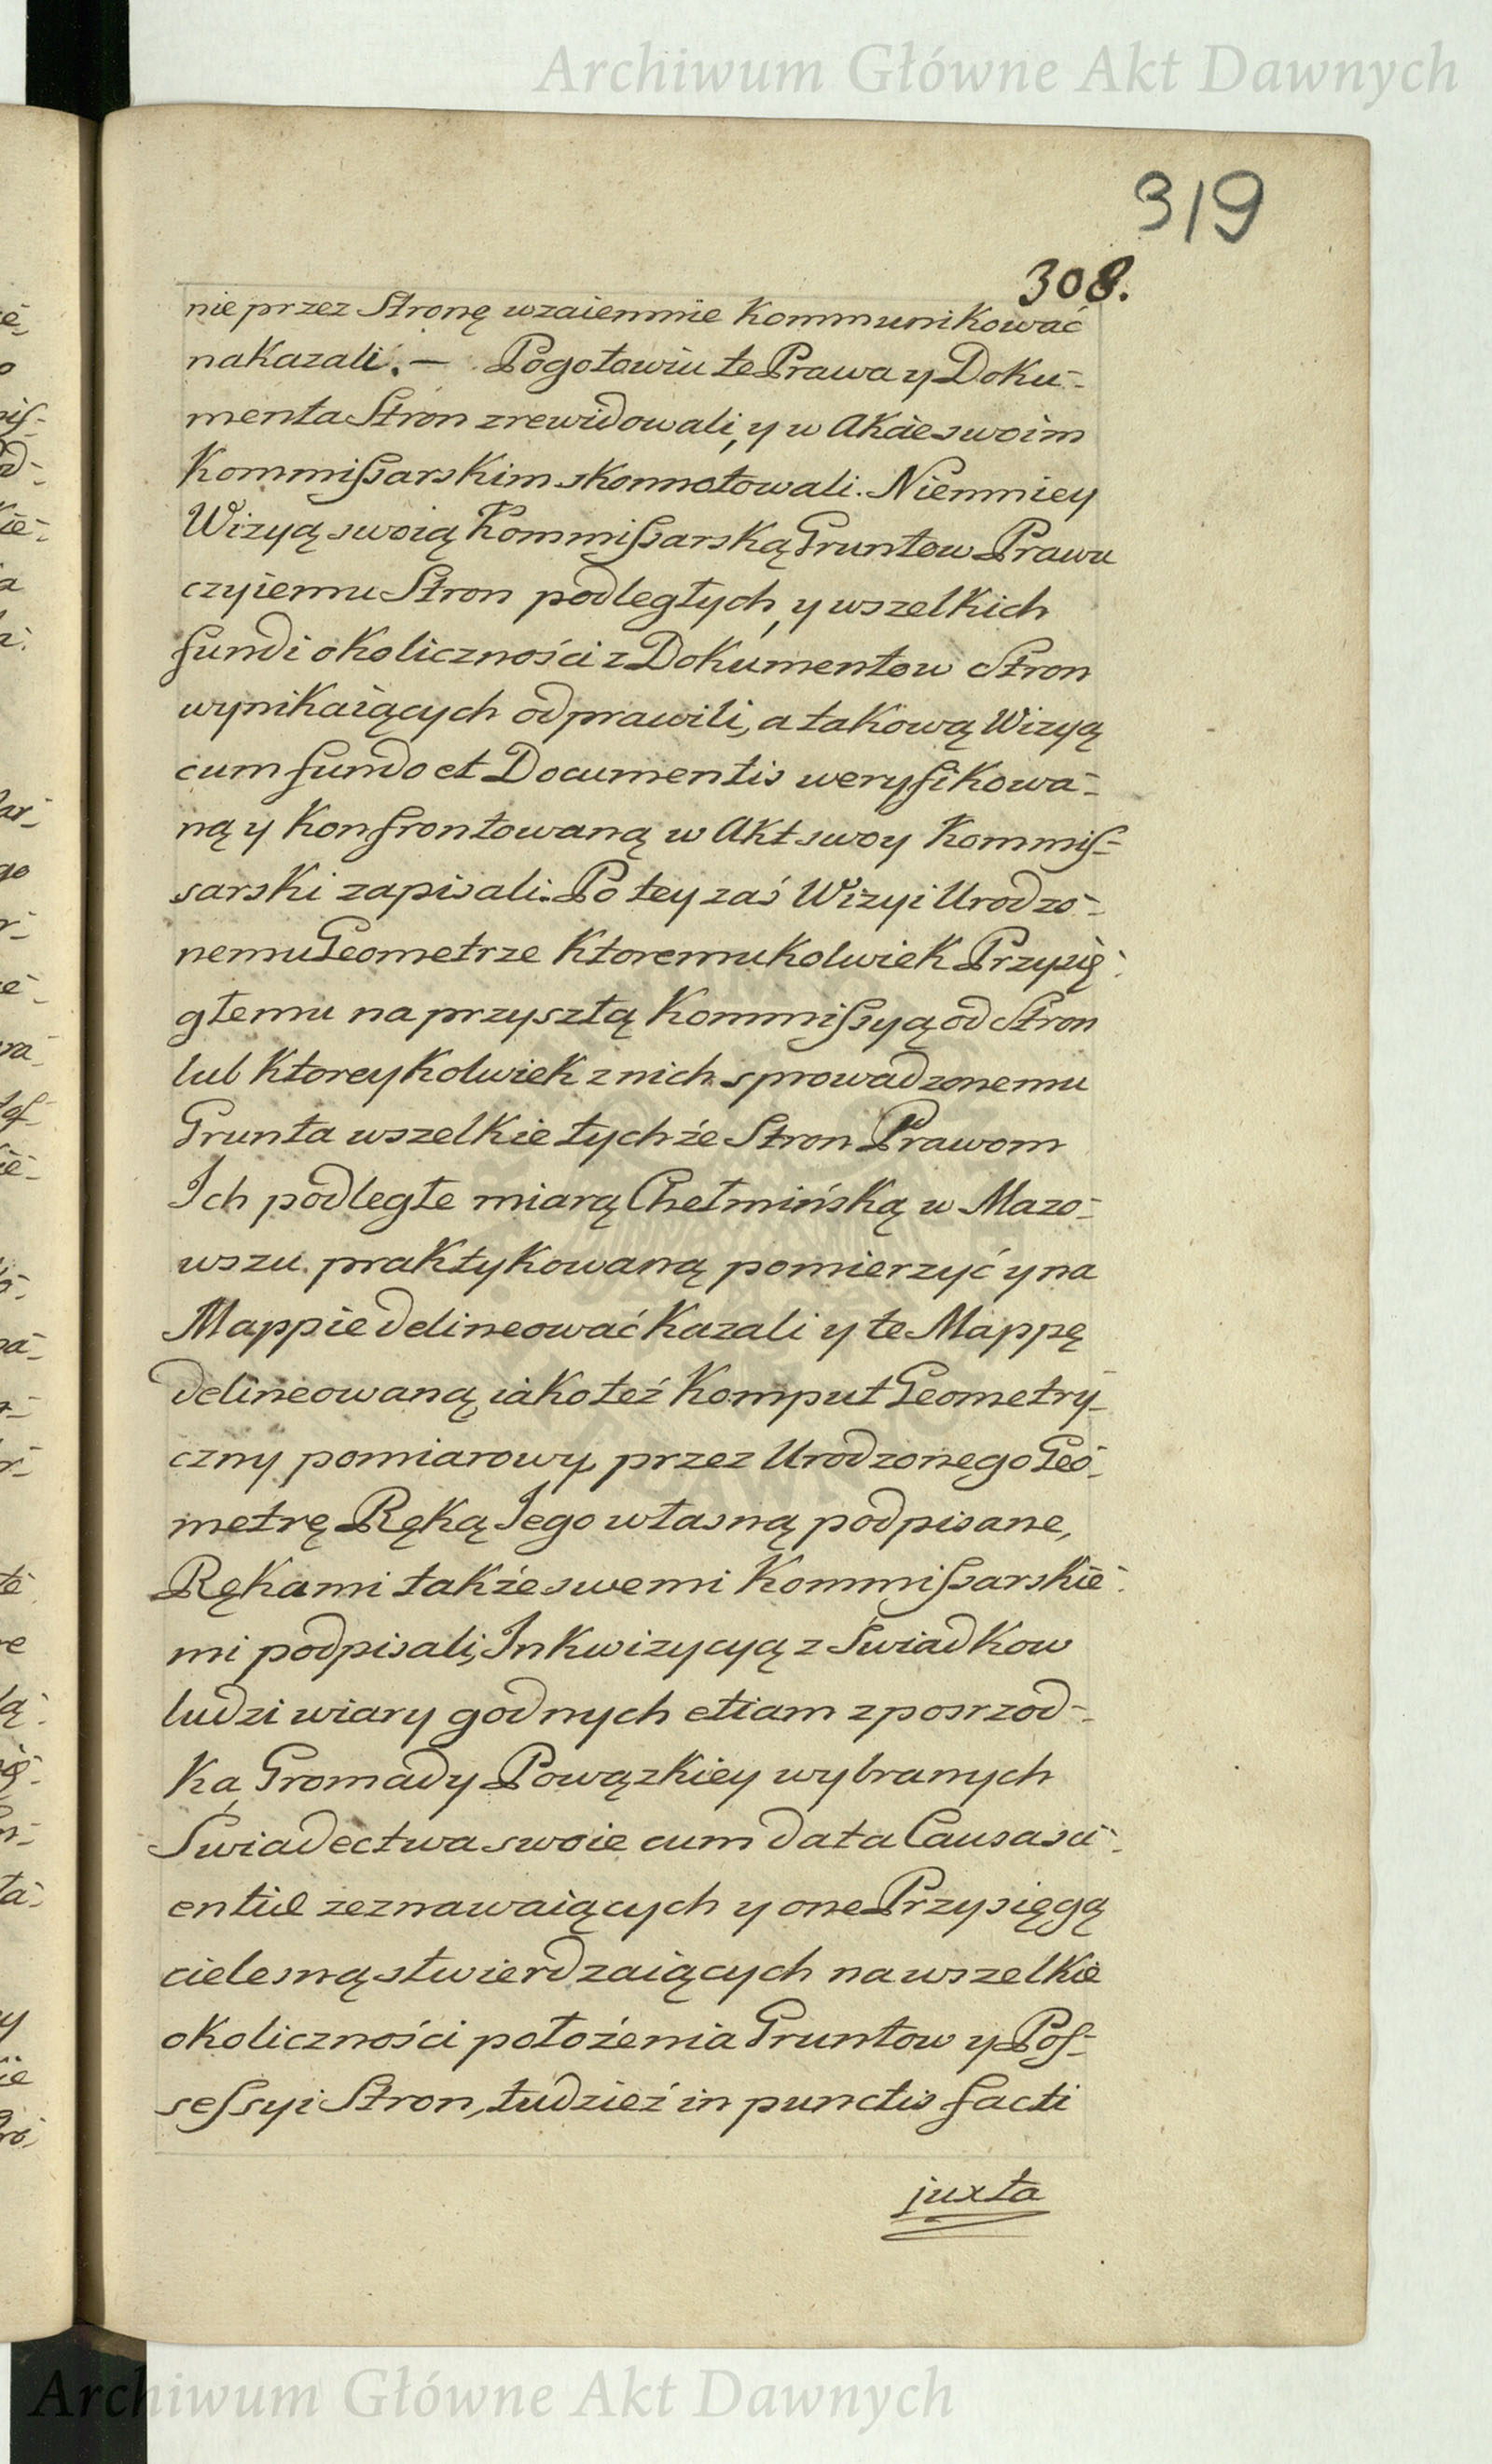 Archiwum Główne Akt Dawnych
319
308.
nie przez Stronę wzaiemnie Kommunikować
nakazali. — Pogotowiu te Prawa y Doku-
menta Stron zrewidowali, y w Akcie swoim
Kommissarskim skonnotowali. Niemniey
Wizyą swoią Kommissarską Gruntow Prawu
czyiemu Stron podległych, y wszelkich
fundi okoliczności z Dokumentow Stron
wynikaiących odprawili, a takową Wizyą
cum fundo et Documentis weryfikowa-
ną y konfrontowaną w Akt swoy Kommis-
sarski zapisali. Po tey zaś Wizyi Urodzo-
nemu Geometrze ktoremukolwiek Przysię-
głemu na przyszłą Kommissyą od Stron
lub ktoreykolwiek z nich sprowadzonemu
Grunta wszelkie tychże Stron Prawom
Ich podległe miarą Chełmińską w Mazo-
wszu praktykowaną pomierzyć y na
Mappie delineować kazali y te Mappę
delineowaną iako też Komput Geometry-
czny pomiarowy przez Urodzonego Geo-
metrę Ręką Jego własną podpisane,
Rękami także swemi Kommissarskie-
mi podpisali, Inkwizycyą z Swiadkow
ludzi wiary godnych etiam z posrzod-
ka Gromady Powązkiey wybranych
Swiadectwa swoie cum data Causa sci-
entiæ zeznawaiących y one Przysięgą
cielesną stwierdzaiących na wszelkie
okoliczności położenia Gruntow y Pos-
sessyi Stron, tudzież in punctis facti
juxta
Archiwum Główne Akt Dawnych